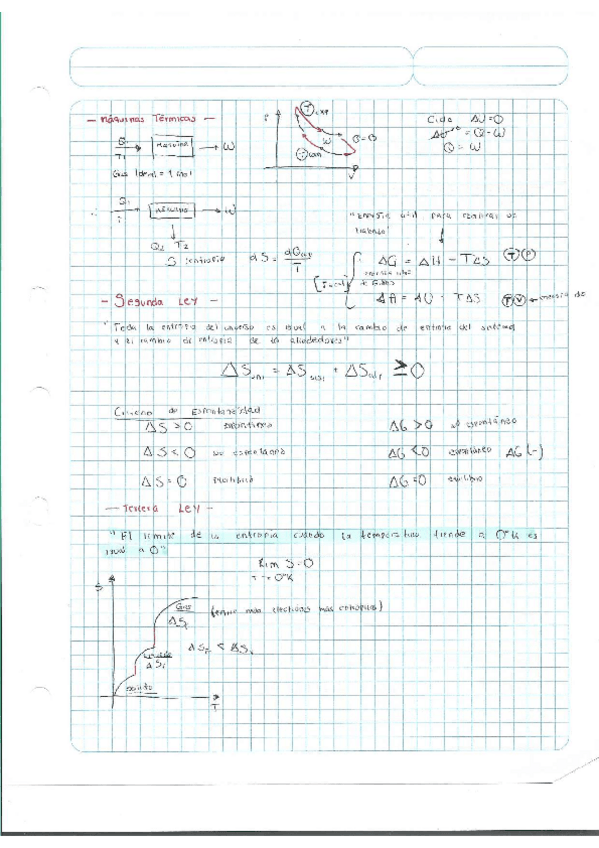 - Máquinas Térmicas -
Q₁
T₁
Máquina
W
Gas Ideal = 1 mol
P
T exp
W
Q=0
T com
V
Ciclo ΔU=0
ΔU = Q-W
Q = W
Q₁
T
Máquina
W
Q₂ T₂
S entropía dS = dQrev
T
"energía util para realizar un
trabajo"
ΔG = ΔH - TΔS (T) (P)
ΔA = ΔU - TΔS (T) (V) ← energía de
- Segunda Ley -
"Toda la entropía del universo es igual a la cambio de entropía del sistema
y al cambio de entropía de los alrededores"
ΔS uni = ΔS sist + ΔS alr ≥ 0
Criterio de Espontaneidad
ΔS > 0 espontáneo
ΔG > 0 no espontáneo
ΔS < 0 no espontáneo
ΔG < 0 espontáneo ΔG (-)
ΔS = 0 equilibrio
ΔG = 0 equilibrio
- Tercera Ley -
"El límite de la entropía cuando la temperatura tiende a 0°K es
igual a 0"
Lim S=0
T→0°K
S
Gas
ΔS
líquido
ΔS
sólido
T